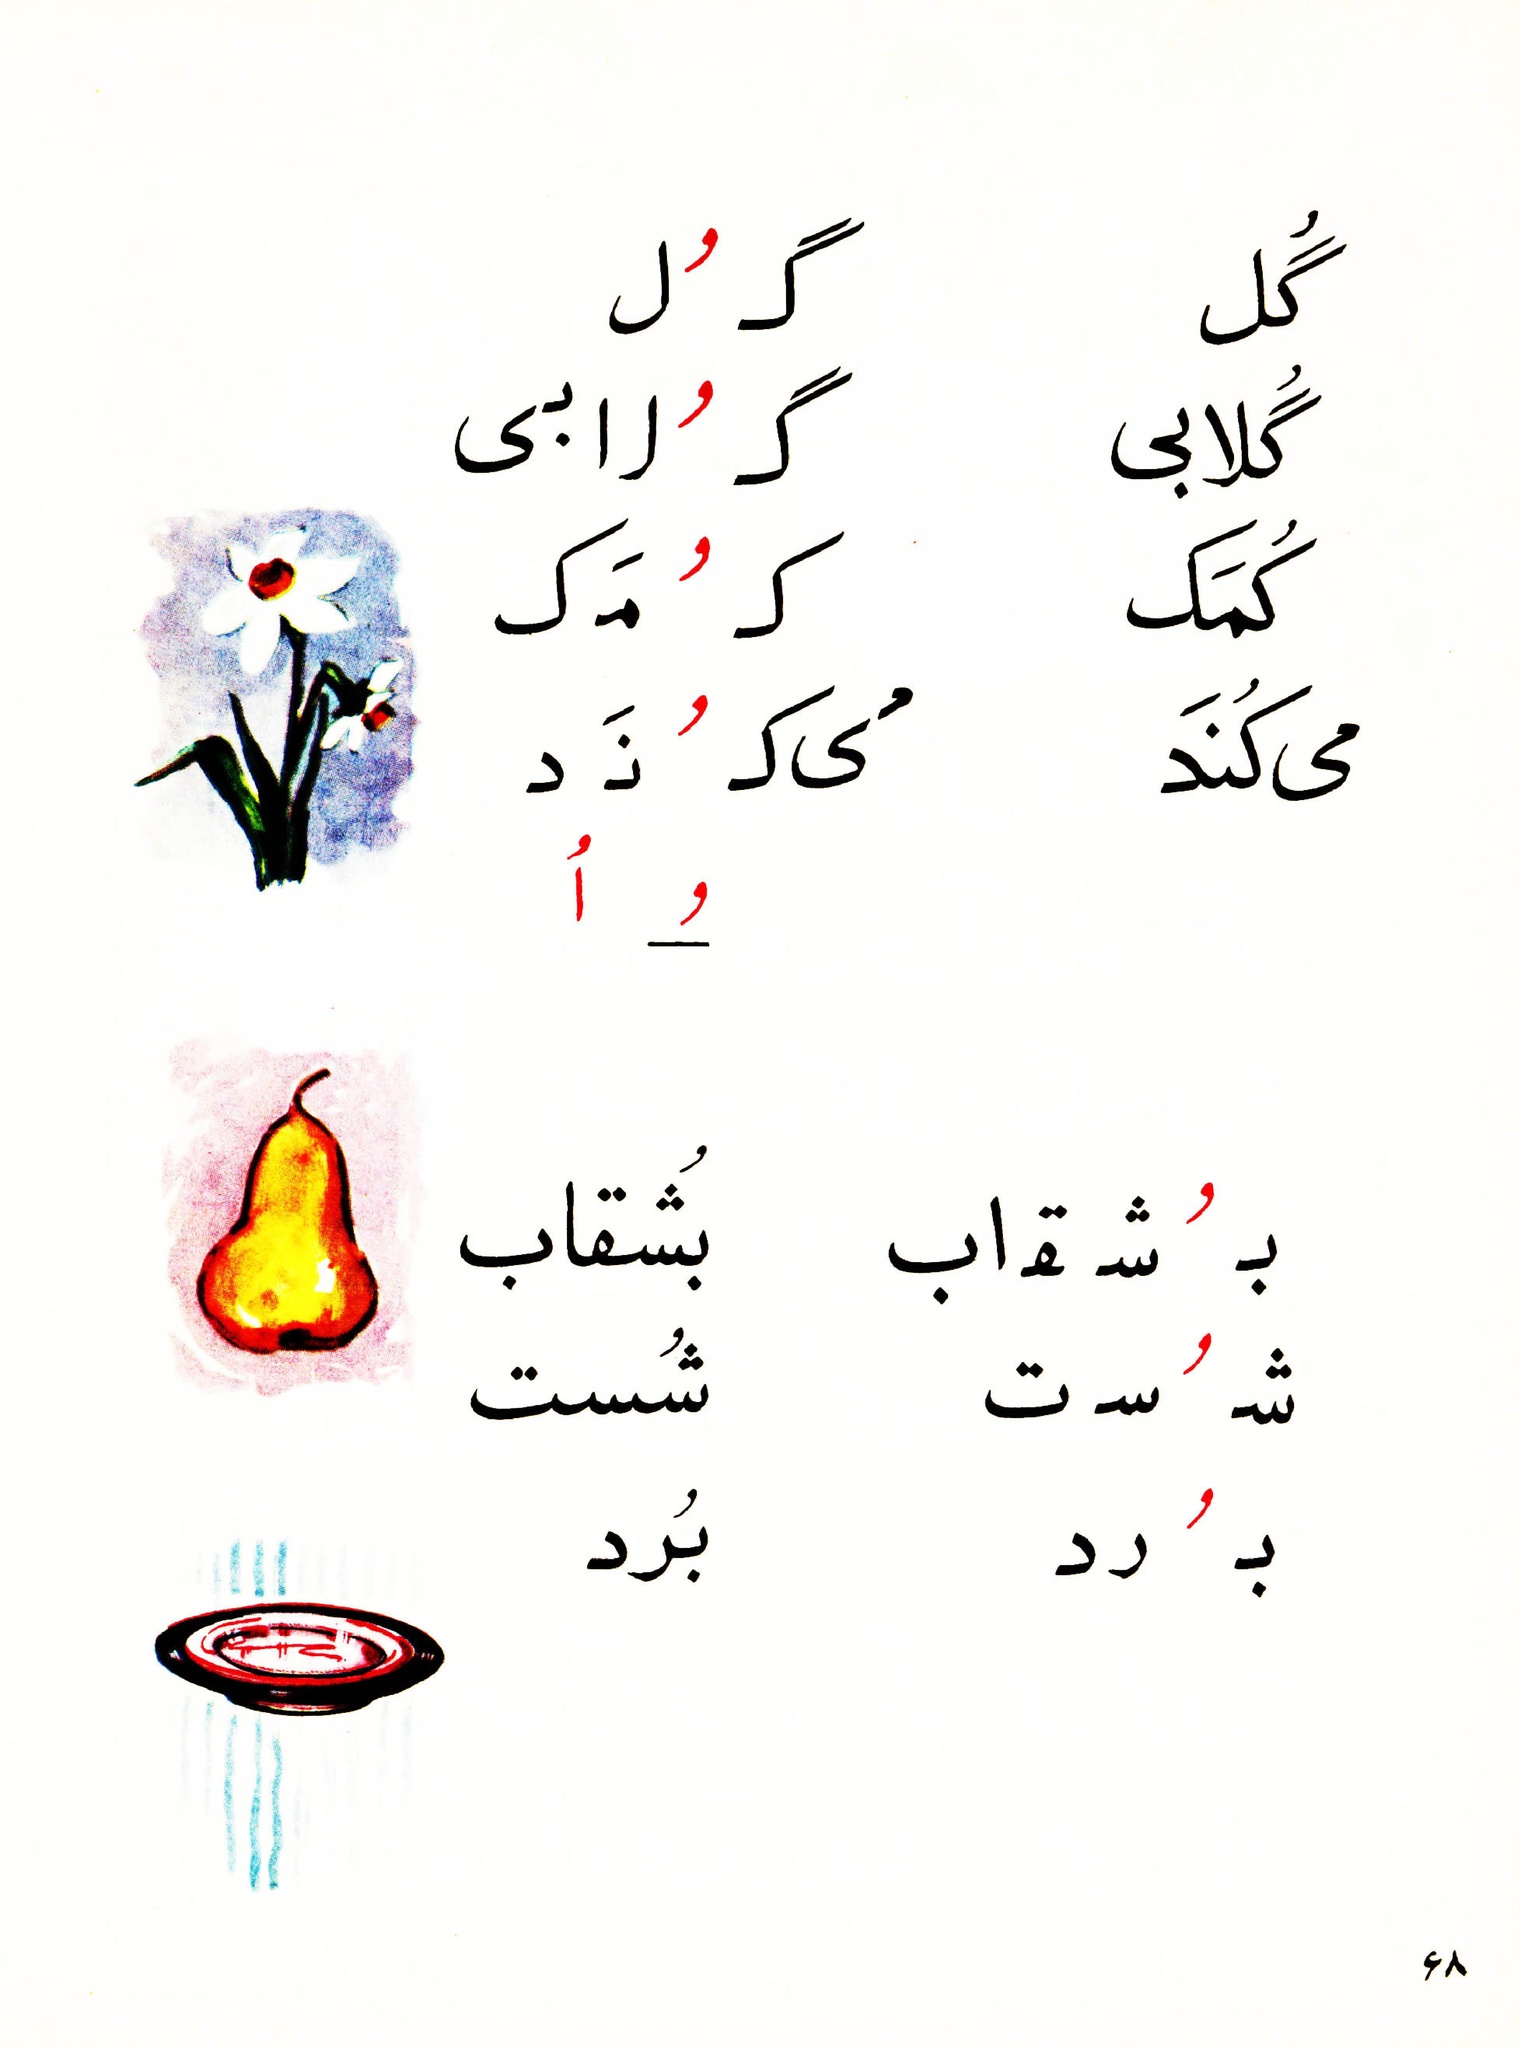 گُل گـ ـُ ل
گُلابی گـ ـُ لـ ا بـ ی
کُمَک کـ ـُ مـَ ک
می‌کُنَد مـ ی کـ ـُ نـَ د
ـُ اُ
بـ ـُ شـ قـ ا ب بُشقاب
شـ ـُ سـ ت شُست
بـ ـُ ر د بُرد
۶۸